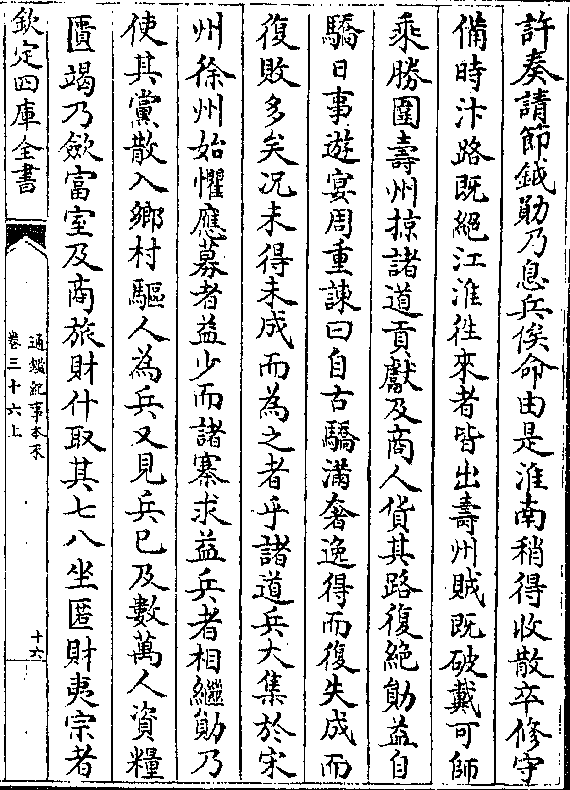 許奏請節鉞勛乃息兵俟命由是淮南稍得收散卒修守
備時汴路既絕江淮徃來者皆出壽州賊既破戴可師
乘勝圍壽州掠諸道貢獻及商人貨其路復絕勛益自
驕日事遊宴周重諫曰自古驕滿奢逸得而復失成而
復敗多矣况未得未成而為之者乎諸道兵大集於宋
州徐州始懼應募者益少而諸寨求益兵者相繼勛乃
使其黨散入鄉村驅人為兵又見兵已及數萬人資糧
匱竭乃歛富室及商旅財什取其七八坐匿財夷宗者
欽定四庫全書
通鑑紀事本末
卷三十六上
十六